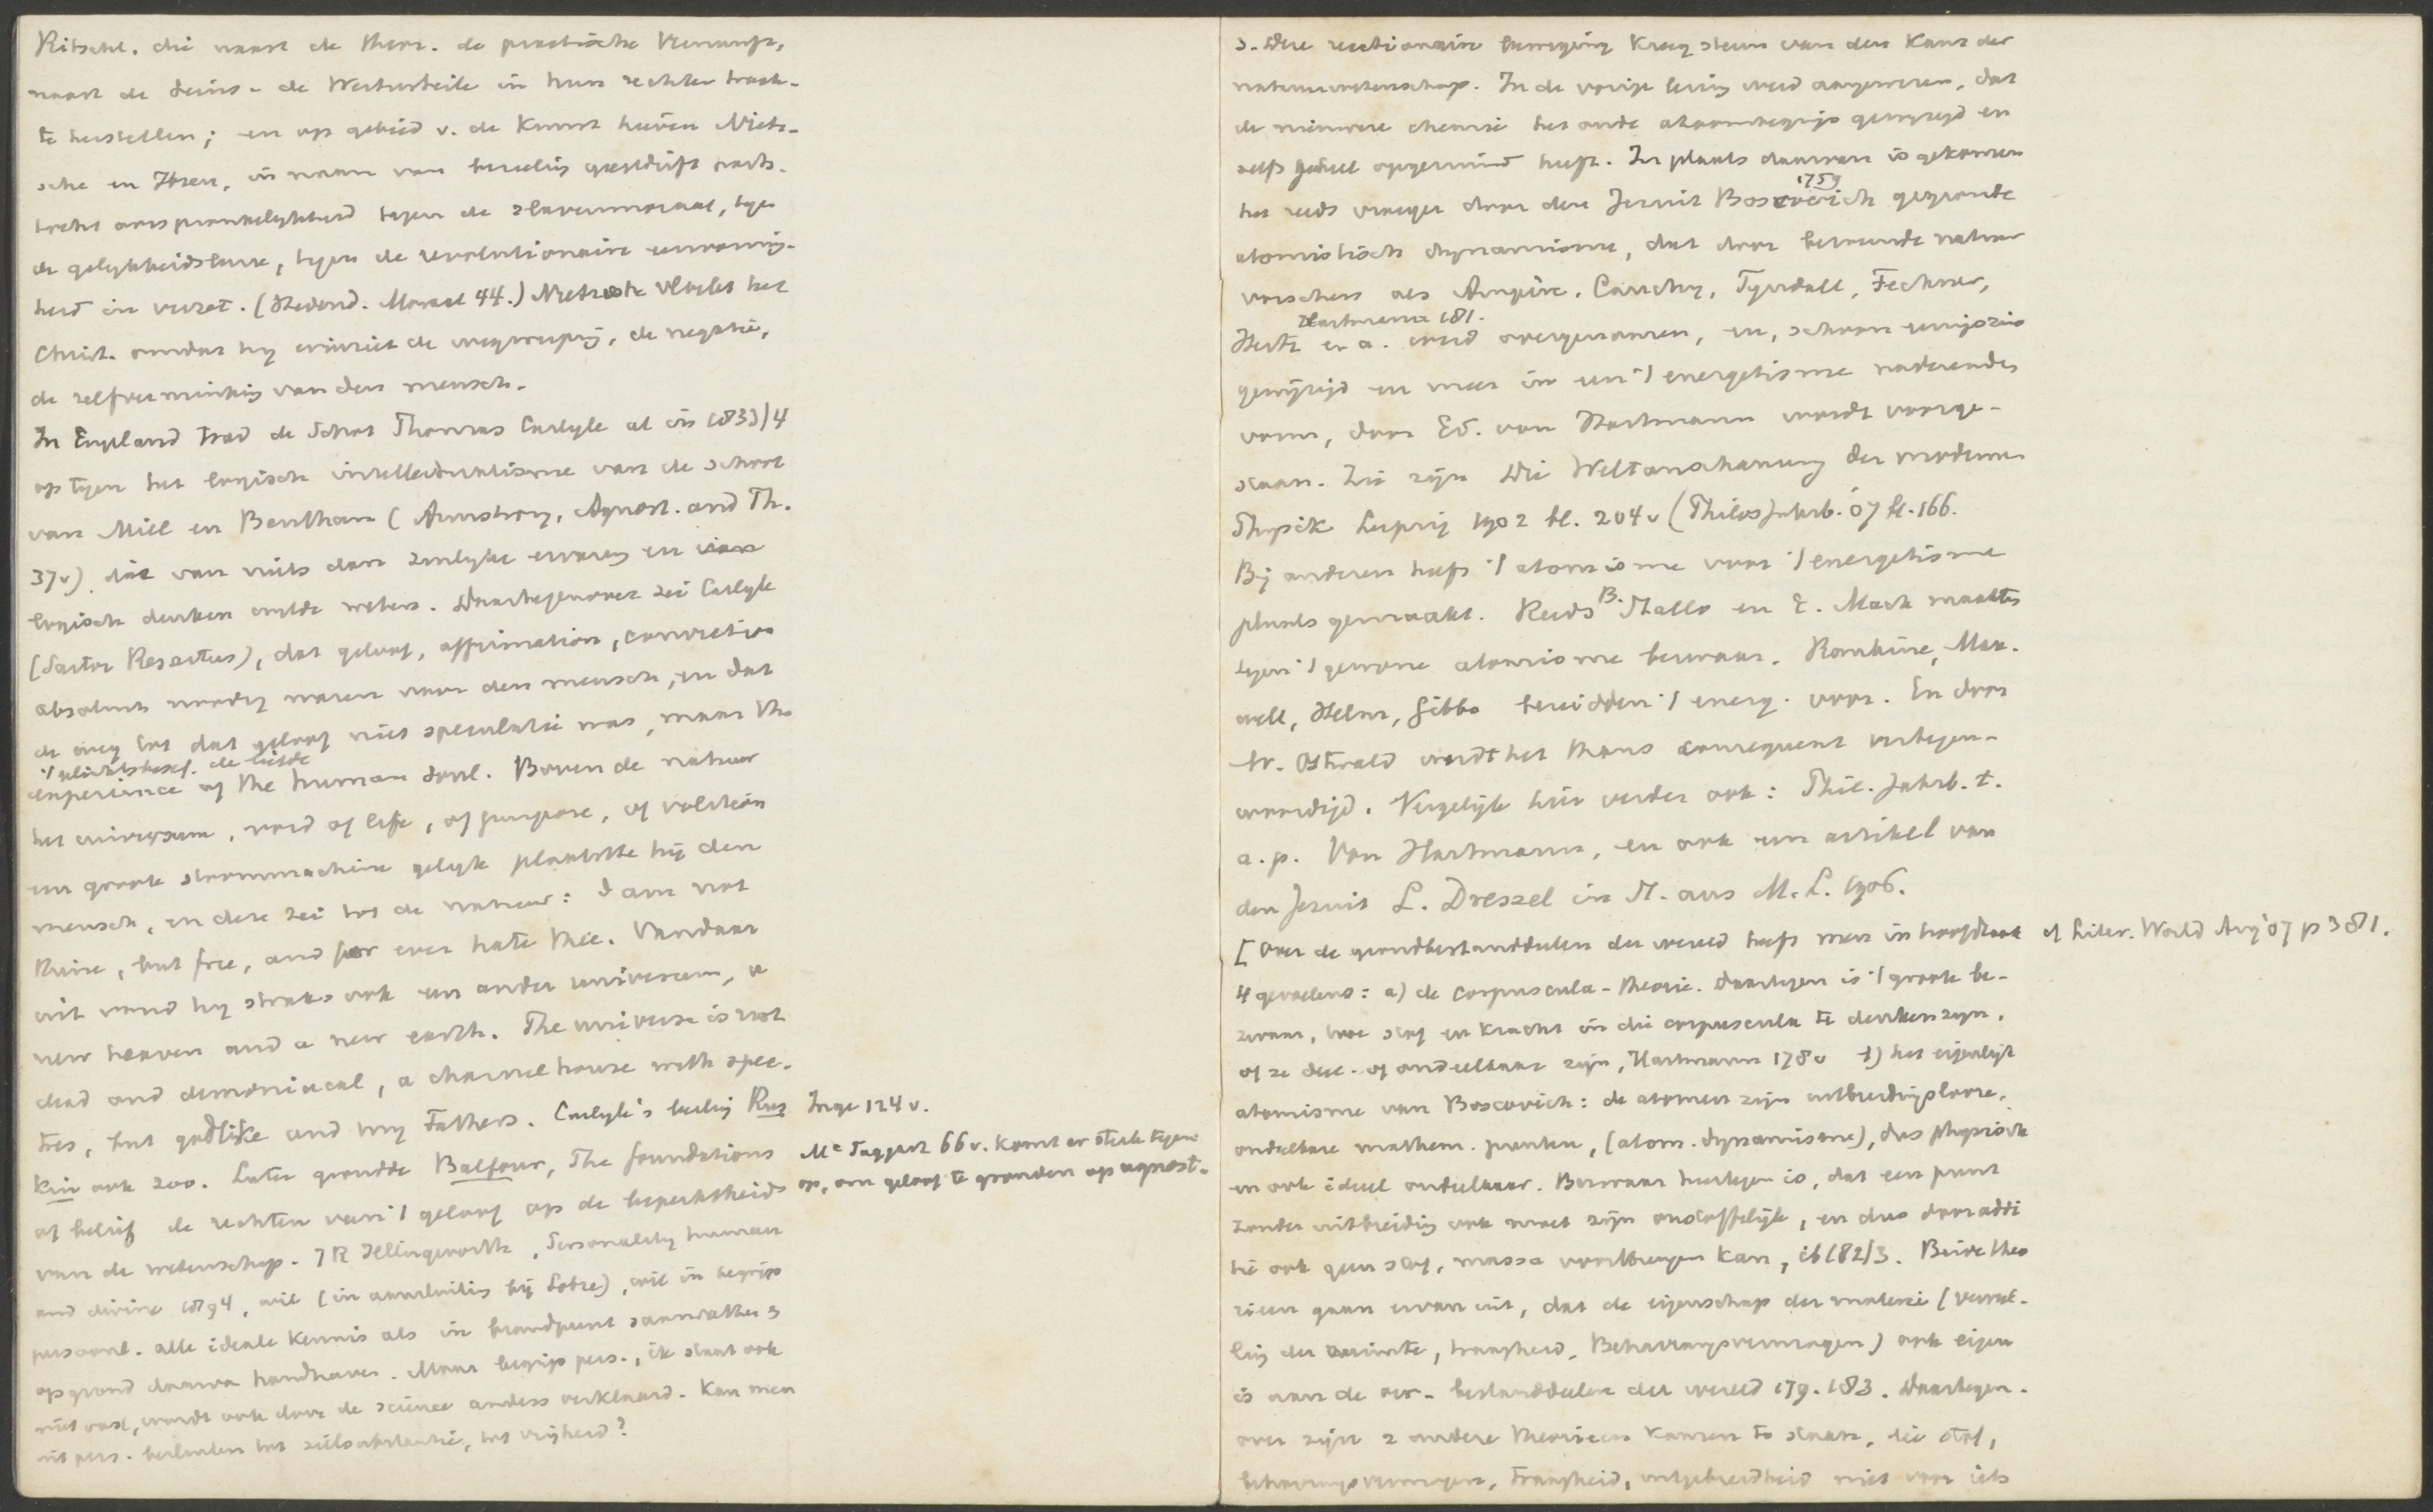 Ritschl. die naast de theor. de practische Vernunft,
naast de Seins- de Werturteile in hun rechten tracht-
te herstellen; en op gebied v. de Kunst hieven Nietz-
sche en Ibsen, in naam van
oorspronkelijkheid tegen de slavenmoraal, tegen
de gelijkheidsleuze, tegen de revolutionaire
heid in verzet. (Hedend. Moraal 44.) Nietzsche vloekt het
Christ. omdat hij erin ziet de wegwerping, de negatie,
de zelfverminking van den mensch.
In Engeland trad de Schot Thomas Carlyle al in 1833/4
op tegen het logisch intellectualisme van de school
van Mill en Bentham (Armstrong, Agnost. and Th.
37v), die van niets dan zinlijke ervaring en van
logisch denken wilde weten. Daartegenover zei Carlyle
(Sartor Resartus), dat geloof, affirmation, conviction
absoluut noodig waren voor den mensch, en dat
de weg tot dat geloof niet speculatie was, maar the
't plichtsbesef. de liefde
experience of the human soul. Boven de natuur
het universum, void of life, of purpose, of volition
een groote stoommachine gelijk plaatste hij den
mensch, en deze zei tot de natuur: I am not
thine, but free, and for ever hate thee. Vandaar
uit vond hij straks ook een ander universum, a
new heaven and a new earth. The universe is not
dead and demoniacal, a charnelhouse with spec-
tres, but godlike and my Fathers. Carlyle's leerling Rus Inge 124v.
kin ook 200. Later grondde Balfour, The foundations
of belief de rechten van 't geloof op de beperktheid
McTaggart 66v. komt er sterk tegen
op, om geloof te gronden op agnost.
van de wetenschap. JR Illingworth, Personality human
and divine 1894, wil (in aansluiting bij Lotze), wil in begrip
personal. alle ideale kennis als in brandpunt saamvatten en
op grond daarvan handhaven. Maar begrip pers., ik staat ook
niet vast, wordt ook door de science anders verklaard. Kan men
uit pers. besluiten tot zielsubstantie, tot vrijheid?
3. Deze reactionaire beweging kreeg steun van den kant der
natuurwetenschap. In de vorige lezing werd aangewezen, dat
de nieuwere chemie het oude atoombegrip gewijzigd en
zelfs geheel opgeruimd heeft. In plaats daarvan is gekomen
1759
het reeds vroeger door den Jezuit Boscovich gegronde
atomistisch dynamisme, dat door beroemde natuur
vorschers als Ampère, Cauchy, Tyndall, Fechner,
Hartmann 181.
Hertz e.a. werd overgenomen, en, schoon eenigszins
gewijzigd en meer in een 't energetisme naderenden
vorm, door Ed. von Hartmann wordt voorge-
staan. Zie zijn Die Weltanschauung der modernen
Physik Leipzig 1902 bl. 204v (Philos Jahrb. 07 bl. 166.
Bij anderen heeft 't atomisme voor 't energetisme
plaats gemaakt. Reeds B. Stallo en E. Mach maakten
tegen 't gewone atomisme bezwaar. Rankine, Max-
well, Helm, Gibbs bereidden 't energ. voor. En door
W. Ostwald wordt het thans consequent vertegen-
woordigd. Vergelijk hier verder ook: Phil. Jahrb. t.
a.p. Von Hartmann, en ook een artikel van
den Jezuit L. Dressel in St. aus M.L. 1906.
[Over de grondbestanddeelen der wereld heeft men in hoofdzaak cf Liter. World Aug 07 p 381.
4 gevoelens: a) de corpuscula-theorie. Daartegen is 't groote be-
zwaar, hoe stof en kracht in die corpuscula te denken zijn,
of ze deel- of ondeelbaar zijn, Hartmann 178v b) het eigenlijk
atomisme van Boscovich: de atomen zijn uitbreidingslooze,
ondeelbare mathem. punten, (atom. dynamisme), dus physisch
en ook ideeel ondeelbaar. Bezwaar hiertegen is, dat een punt
zonder uitbreiding ook moet zijn onstoffelijk, en dus door additi
tie ook geen stof, massa voortbrengen kan, ib 182/3. Beide theo
rieen gaan ervan uit, dat de eigenschap der materie (vervul-
ling der ruimte, traagheid, Beharrungsvermogen) ook eigen
is aan de oer-bestanddeelen der wereld 179. 183. Daartegen-
over zijn 2 andere theorieen komen te staan, die stof,
beharrungsvermogen, traagheid, uitgebreidheid niet voor iets